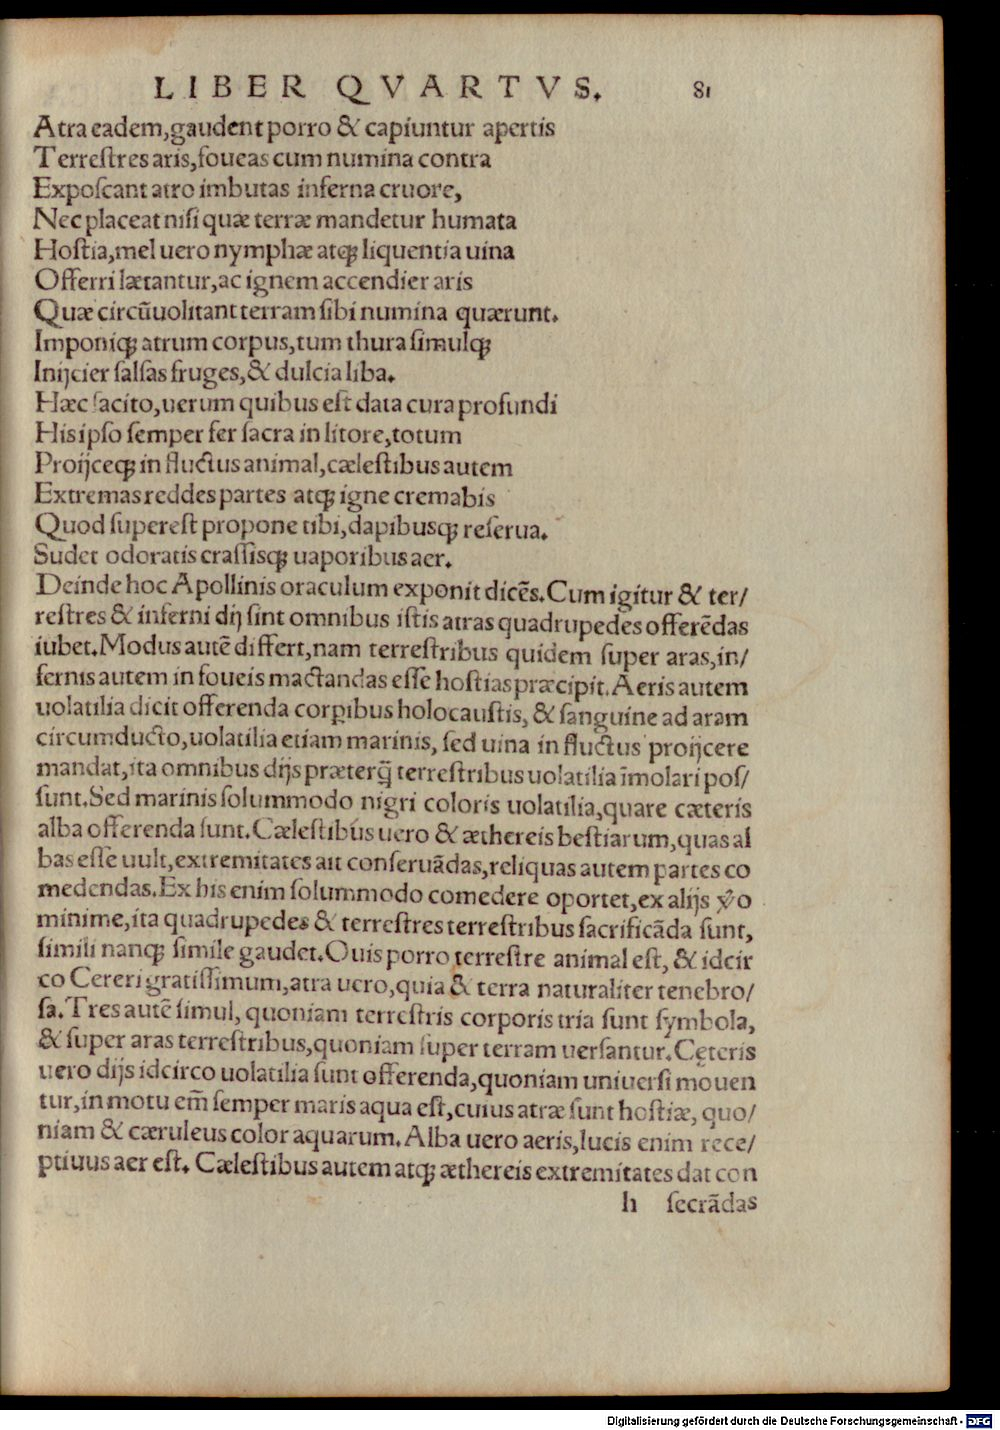 LIBER QVARTVS. 81
Atra eadem,gaudent porro & capiuntur apertis
Terrestres aris,foueas cum numina contra
Exposcant atro imbutas inferna cruore,
Nec placeat nisi quæ terræ mandetur humata
Hostia,mel uero nymphæ atqꝫ liquentia uina
Offerri lætantur,ac ignem accendier aris
Quæ circũuolitant terram sibi numina quærunt.
Imponiqꝫ atrum corpus,tum thura simulqꝫ
Inijcier salsas fruges,& dulcia liba.
Hæc facito,uerum quibus est data cura profundi
His ipso semper fer sacra in litore,totum
Proijceqꝫ in fluctus animal,cælestibus autem
Extremas reddes partes atqꝫ igne cremabis
Quod superest propone tibi,dapibusqꝫ reserua.
Sudet odoratis crassisqꝫ uaporibus aer.
Deinde hoc Apollinis oraculum exponit dicẽs.Cum igitur & ter/
restres & inferni dij sint omnibus istis atras quadrupedes offerẽdas
iubet.Modus autẽ differt,nam terrestribus quidem super aras,in/
fernis autem in foueis mactandas esse hostias præcipit.Aeris autem
uolatilia dicit offerenda corpibus holocaustis, & sanguine ad aram
circumducto,uolatilia etiam marinis, sed uina in fluctus proijcere
mandat,ita omnibus dijs præterq̃ terrestribus uolatilia ĩmolari pos/
sunt.Sed marinis solummodo nigri coloris uolatilia,quare cæteris
alba offerenda sunt.Cælestibus uero & æthereis bestiarum,quas al
bas esse uult,extremitates ait conseruãdas,reliquas autem partes co
medendas.Ex his enim solummodo comedere oportet,ex alijs ỹo
minime,ita quadrupedes & terrestres terrestribus sacrificãda sunt,
simili nanqꝫ simile gaudet.Ouis porro terrestre animal est, & idcir
co Cereri gratissimum,atra uero,quia & terra naturaliter tenebro/
sa.Tres autẽ simul, quoniam terrestris corporis tria sunt symbola,
& super aras terrestribus,quoniam super terram uersantur.Cęteris
uero dijs idcirco uolatilia sunt offerenda,quoniam uniuersi mouen
tur,in motu em̃ semper maris aqua est,cuius atræ sunt hostiæ, quo/
niam & cæruleus color aquarum.Alba uero aeris,lucis enim rece/
ptiuus aer est. Cælestibus autem atqꝫ æthereis extremitates dat con
h secrãdas
Digitalisierung gefördert durch die Deutsche Forschungsgemeinschaft - DFG